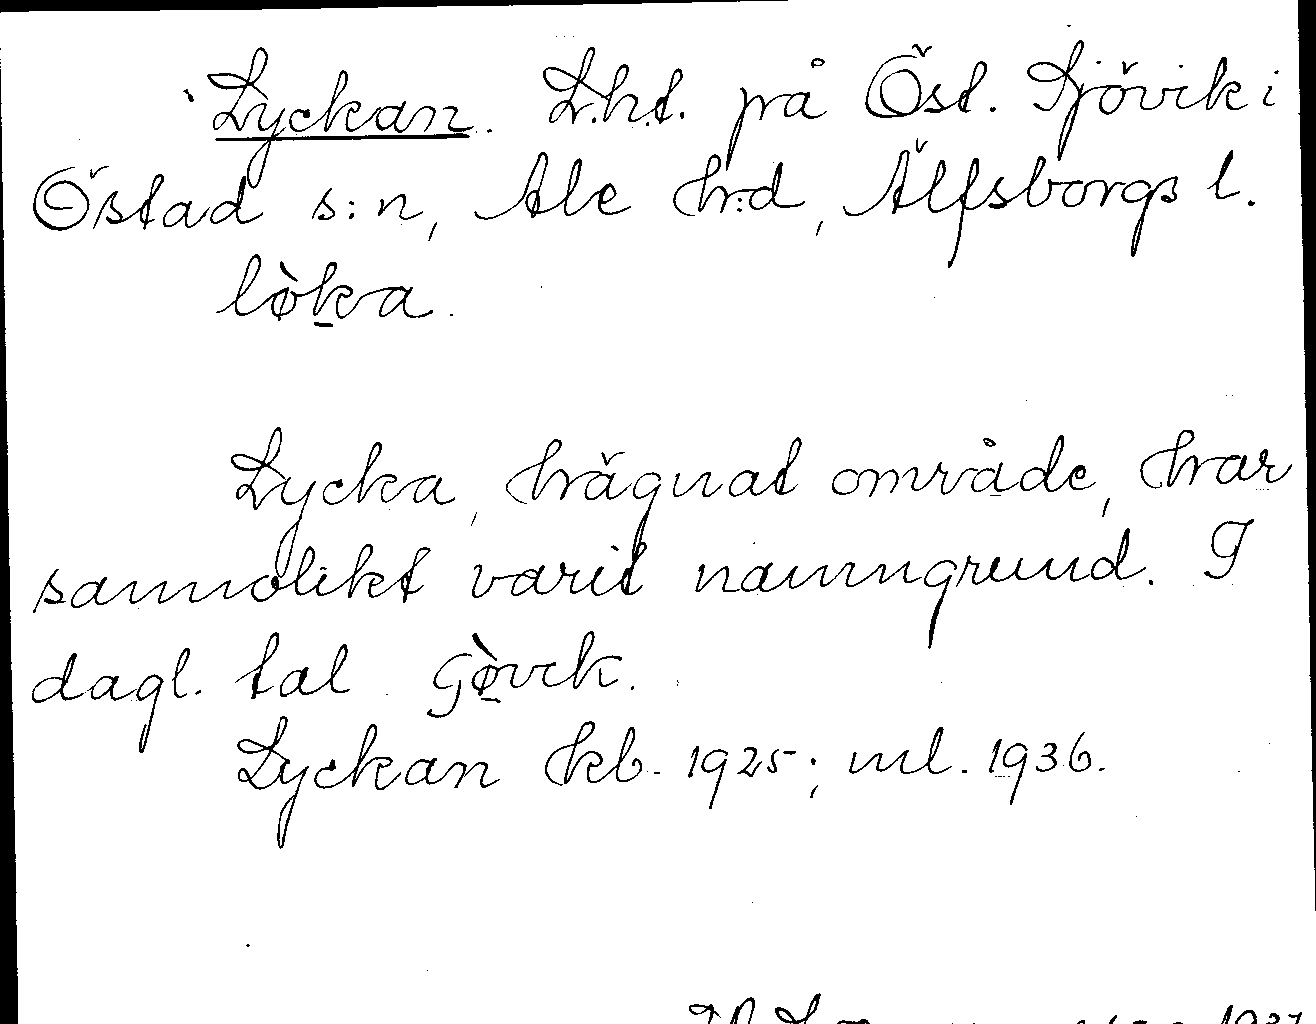 Lyckan. L.h.t. på Öst. Sjövik i
Östad s:n, Ale h:d, Älfsborgs l.
lø̀ka.
Lycka, hägnat område, har
sannolikt varit namngrund. I
dagl. tal
Lyckan kb. 1925; ml. 1936.
1937